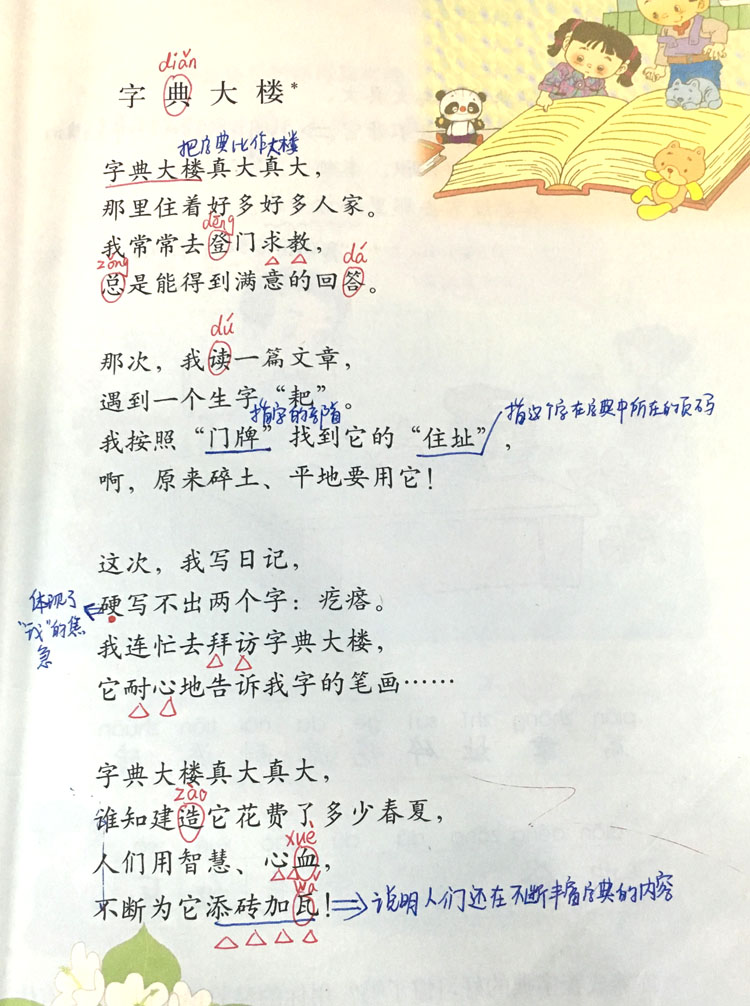 diǎn
字典大楼*
把字典比作大楼
字典大楼真大真大，
那里住着好多好多人家。
dēng
我常常去登门求教，
zǒng dá
总是能得到满意的回答。
dú
那次，我读一篇文章，
遇到一个生字“耙”。
指字的部首 指这个字在字典中所在的页码
我按照“门牌”找到它的“住址”，
啊，原来碎土、平地要用它！
这次，我写日记，
体现了“我”的焦急
硬写不出两个字：疙瘩。
我连忙去拜访字典大楼，
它耐心地告诉我字的笔画……
字典大楼真大真大，
zào
谁知建造它花费了多少春夏，
xuè
人们用智慧、心血，
wǎ
不断为它添砖加瓦！
说明人们还在不断丰富字典的内容